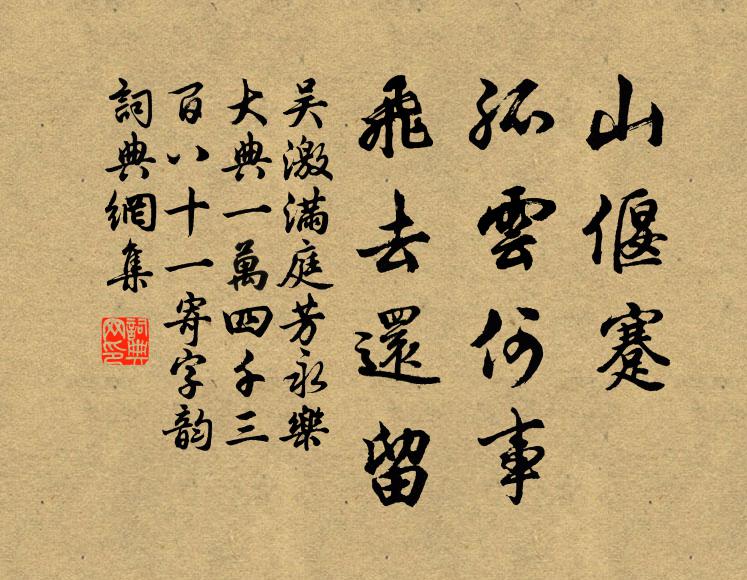 山偃蹇
孤雲何事
飛去還留
吳激滿庭芳永樂
大典一萬四千三
百八十一寄字韵
詞典網集
詞典
网印